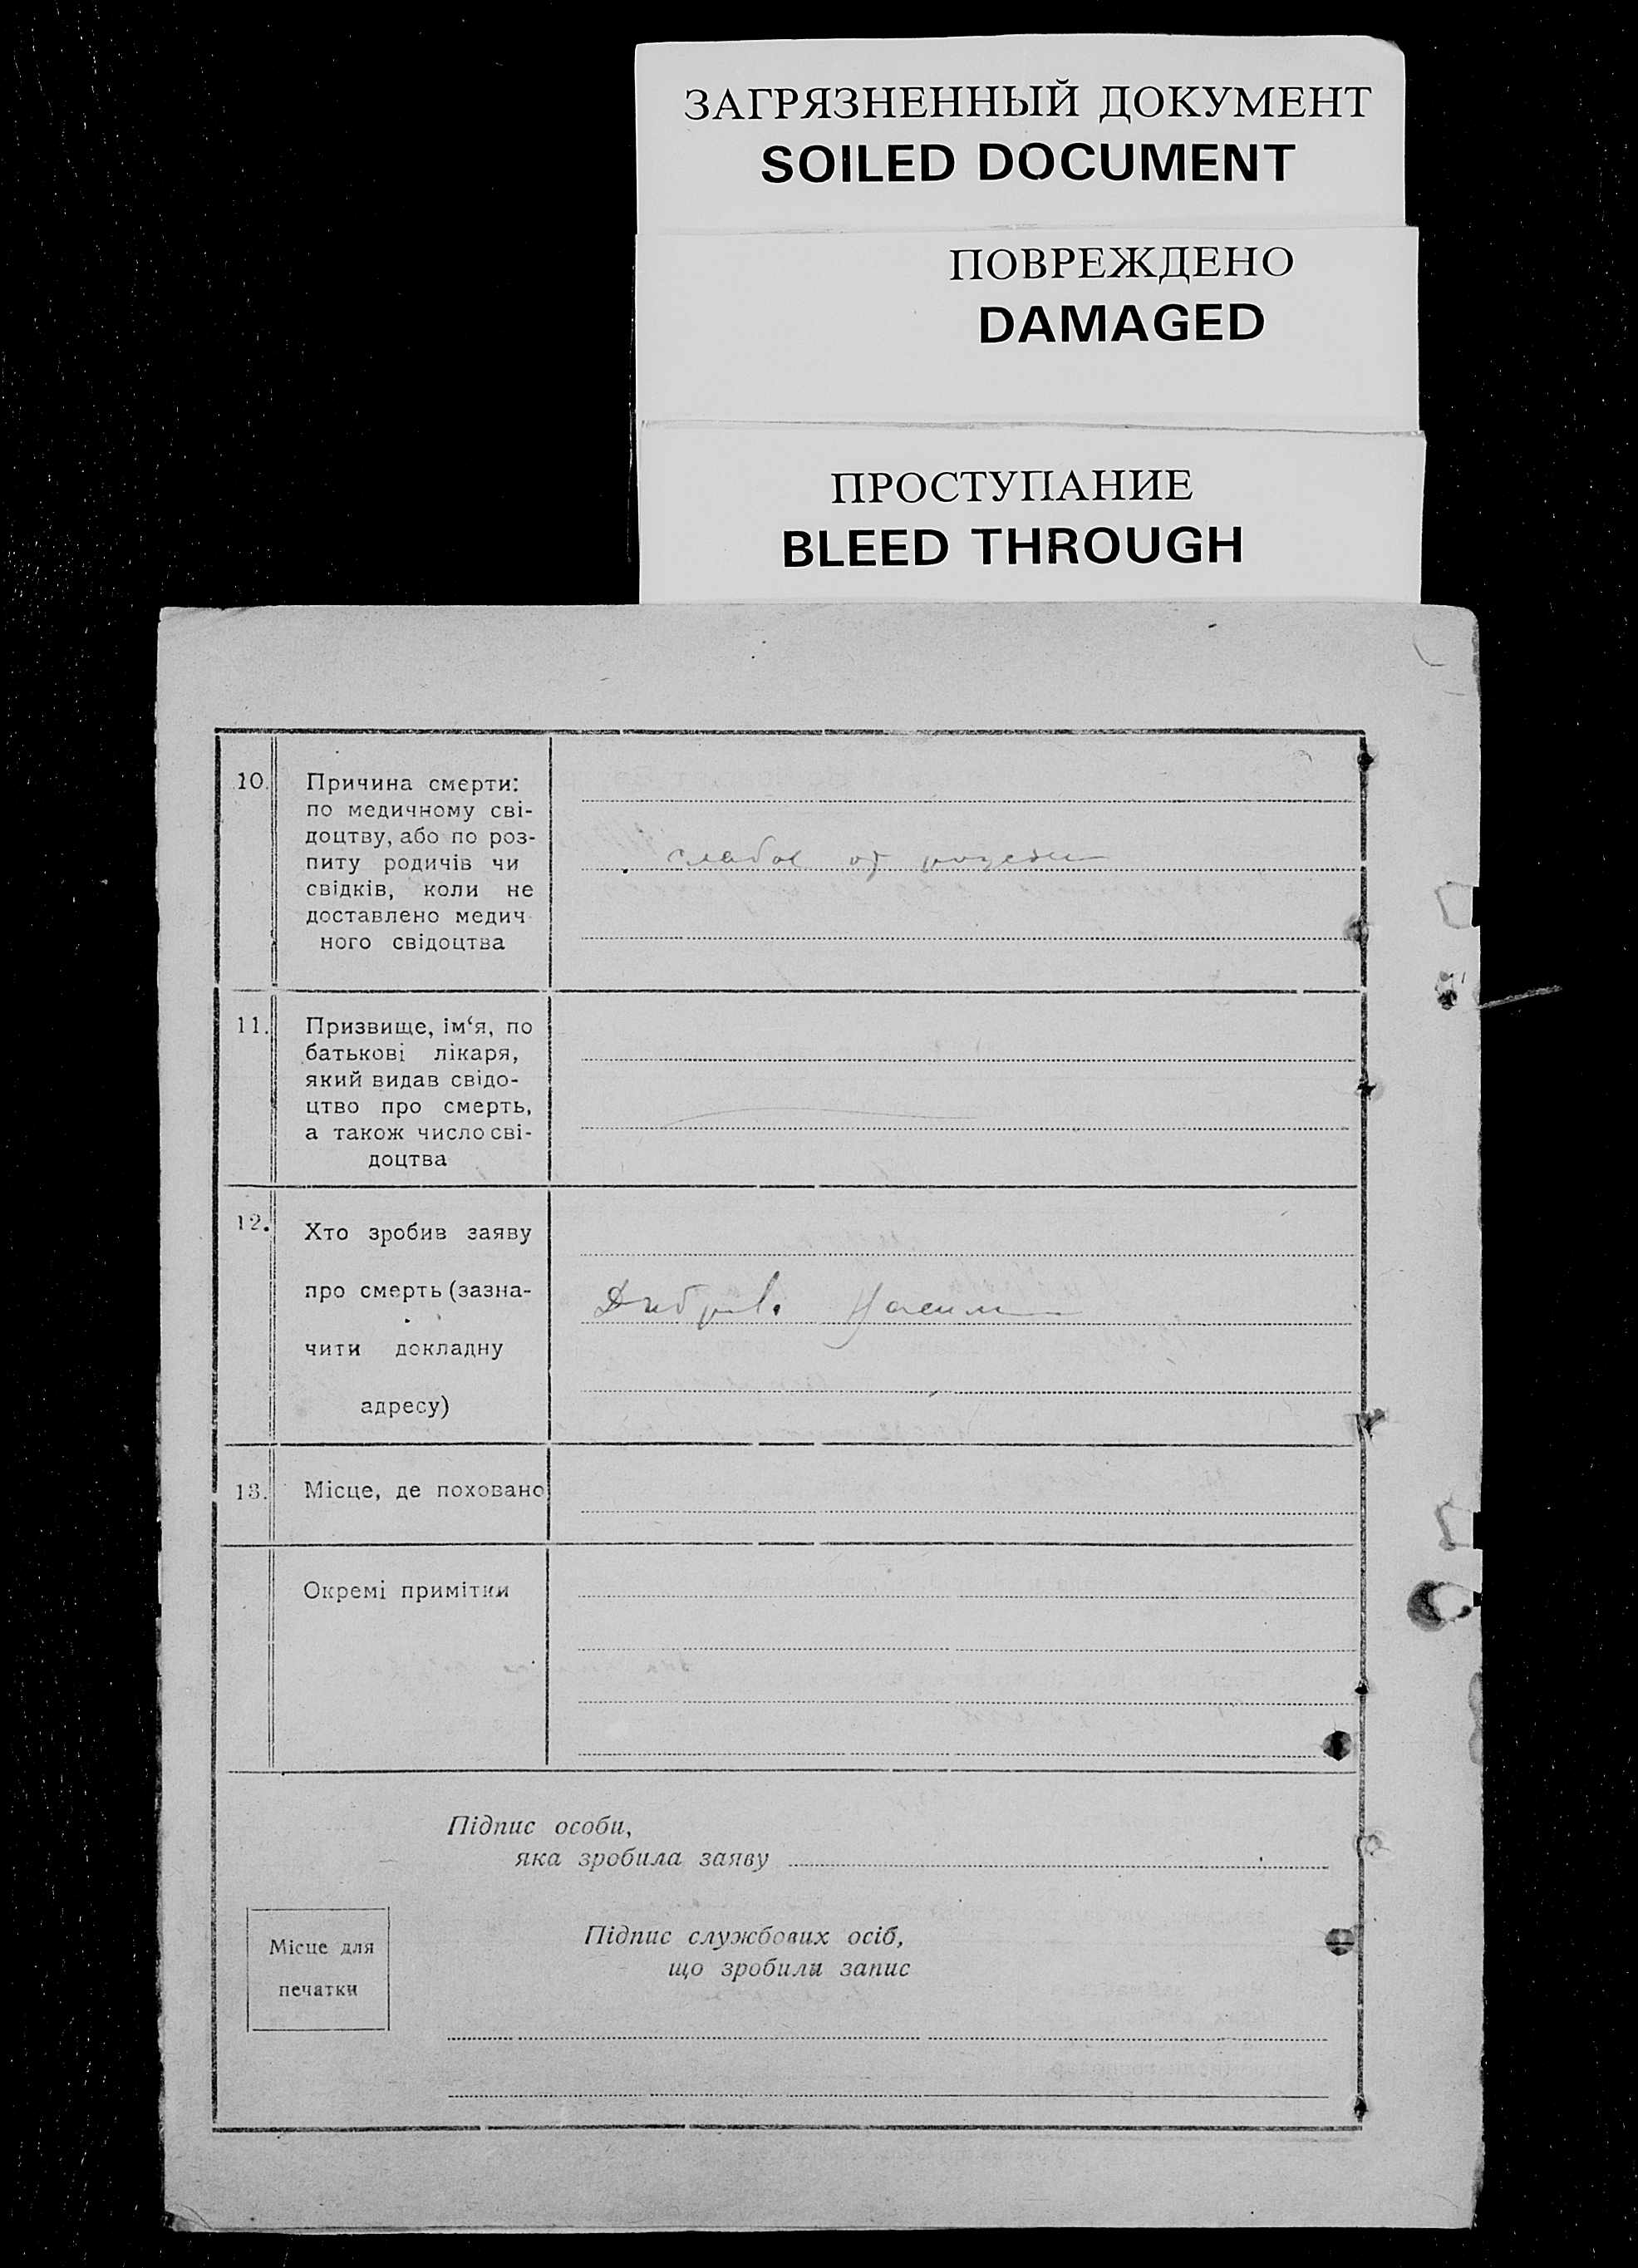 ЗАГРЯЗНЕННЫЙ ДОКУМЕНТ
SOILED DOCUMENT
ПОВРЕЖДЕНО
DAMAGED
ПРОСТУПАНИЕ
BLEED THROUGH
10. Причина смерти:
по медичному сві-
доцтву, або по роз-
питу родичів чи
свідків, коли не
доставлено медич
ного свідоцтва
11. Призвище, ім‘я, по
батькові лікаря,
який видав свідо-
цтво про смерть,
а також число сві-
доцтва
12. Хто зробив заяву
про смерть (зазна-
чити докладну
адресу)
13. Місце, де поховано
Окремі примітки
Підпис особи,
яка зробила заяву
Місце для
печатки
Підпис службових осіб,
що зробили запис